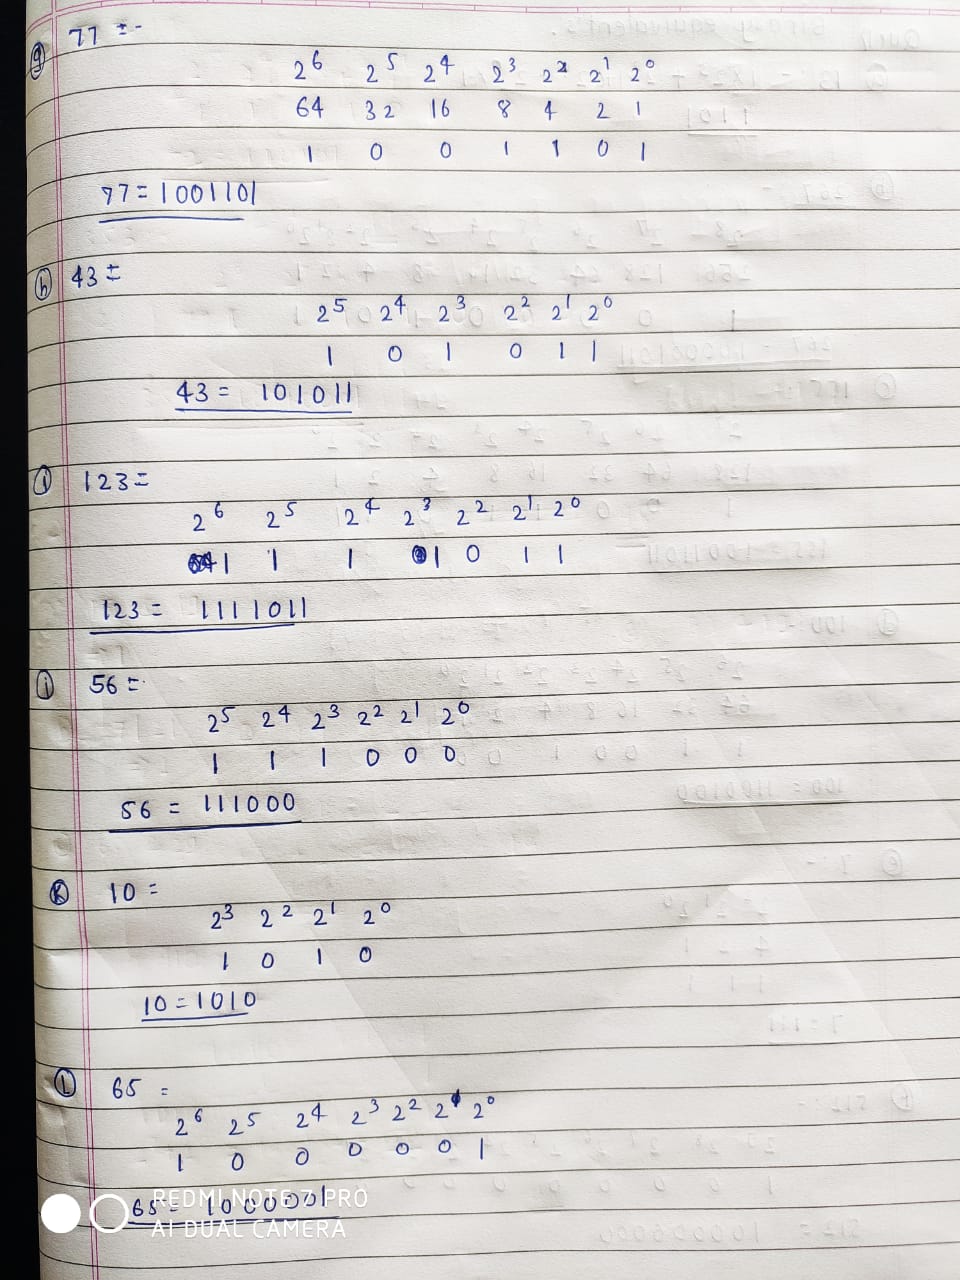 g 77 =
2^6 2^5 2^4 2^3 2^2 2^1 2^0
64 32 16 8 4 2 1
1 0 0 1 1 0 1
77 = 1001101
h 43 =
2^5 2^4 2^3 2^2 2^1 2^0
1 0 1 0 1 1
43 = 101011
i 123 =
2^6 2^5 2^4 2^3 2^2 2^1 2^0
1 1 1 1 0 1 1
123 = 1111011
j 56 =
2^5 2^4 2^3 2^2 2^1 2^0
1 1 1 0 0 0
56 = 111000
K 10 =
2^3 2^2 2^1 2^0
1 0 1 0
10 = 1010
L 65 =
2^6 2^5 2^4 2^3 2^2 2^1 2^0
1 0 0 0 0 0 1
65 = 1000001
REDMI NOTE 7 PRO
AI DUAL CAMERA